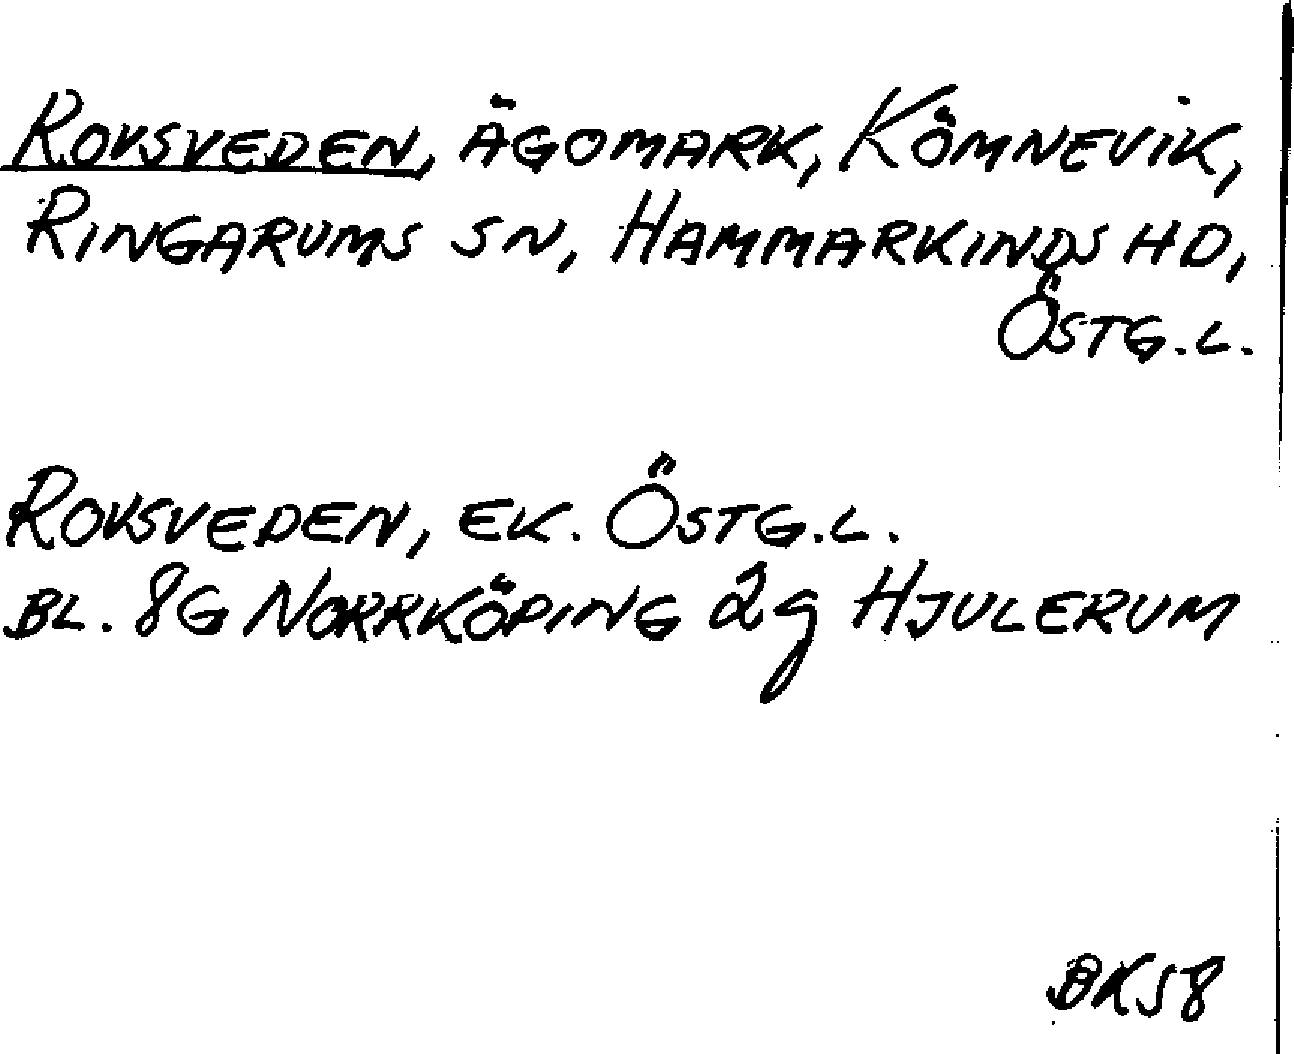 ROVSVEDEN, ÄGOMARK, KÖMNEVIK,
RINGARUMS SN, HAMMARKINDS HD,
ÖSTG.L.
ROVSVEDEN, EK. ÖSTG.L.
BL. 8G NORRKÖPING 2g HJULERUM
BK58